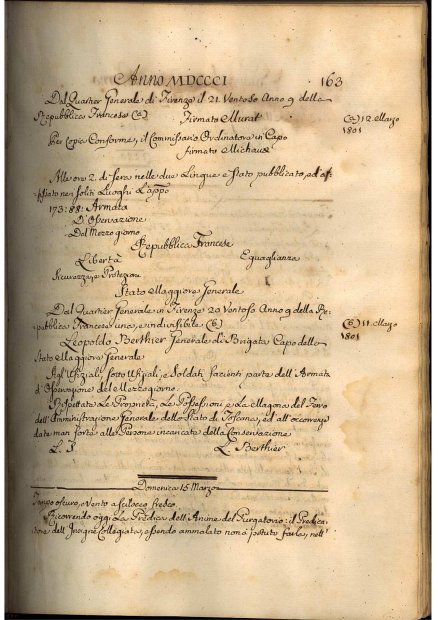 Anno MDCCCI 163
Dal Quartier Generale di Firenze il 21. Ventoso Anno 9 della
Repubblica Francese (a) Firmato Murat (a) 12. Marzo
1801
Per Copia Conforme, il Commissario Ordinatore in Capo
firmato Michaux
Alle ore 2. di sera nelle due Lingue è stato pubblicato, ed af-
fissato nei soliti Luoghi
173: 88: Armata
D'Osservazione
Del Mezzogiorno
Repubblica Francese
Libertà Eguaglianza
Sicurezza, e Protezione
Stato Maggiore Generale
Dal Quartier Generale in Firenze 20 Ventoso Anno 9 della Re-
pubblica Francese una, e indivisibile (b) (b) 11. Marzo
1801
Leopoldo Berthier Generale di Brigata Capo dello
Stato Maggiore Generale
Agl'Ufiziali, sotto Ufiziali, e Soldati facienti parte dell'Armata
d'Osservazione del Mezzogiorno.
Rispettate Le Proprietà, Le Possessioni e La Magona del Ferro
dell'Amministrazione Generale dello Stato di Toscana, ed all'occorrenza
date man forte alle Persone incaricate della Conservazione
L. Berthier
Domenica 15 Marzo
Tempo oscuro, e vento a scilocco fresco
Ricorrendo oggi La Predica dell'Anime del Purgatorio: il Predica-
tore dell'Insigne Collegiata, essendo ammalato non à potuto farla, nell'